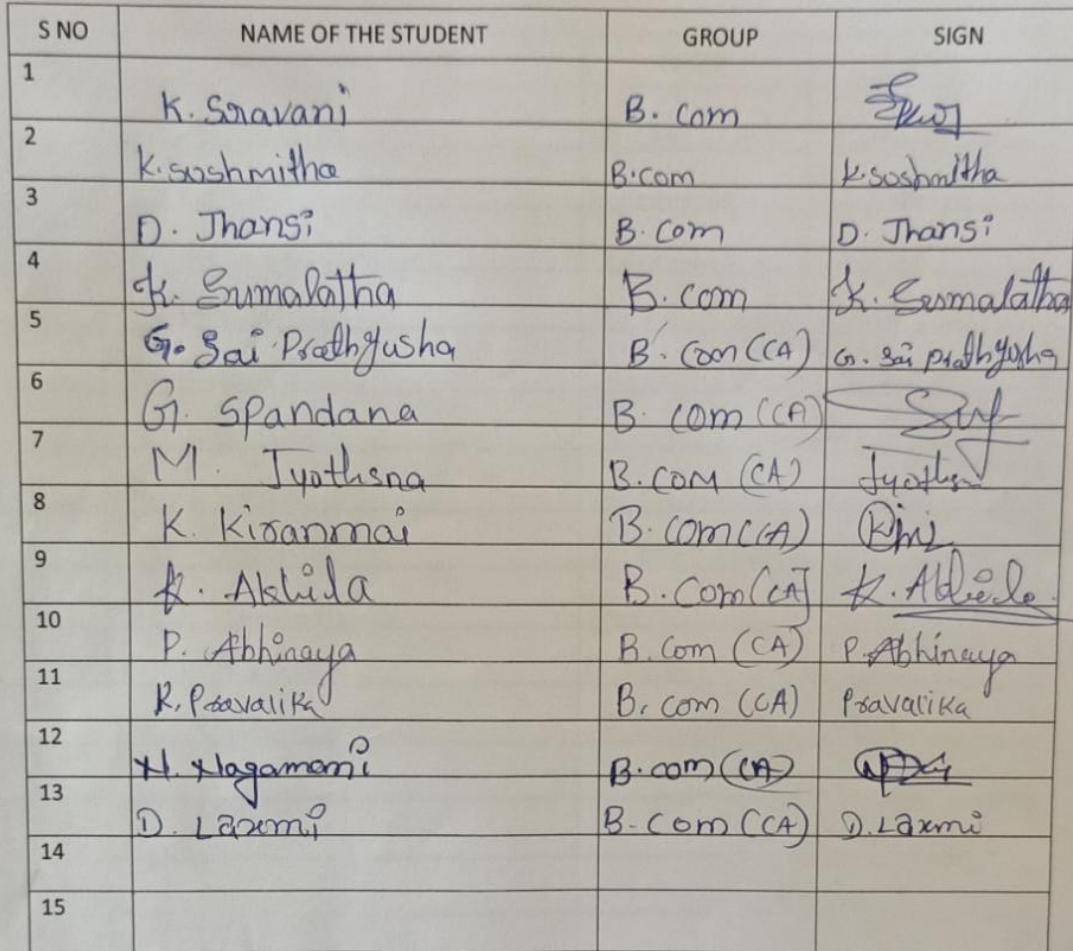 S NO NAME OF THE STUDENT GROUP SIGN
1 K. Sravani B. Com
2 K. soshmitha B.com K. soshmitha
3 D. Jhansi B. Com D. Jhansi
4 K. Sumalatha B. com K. Sumalatha
5 G. Sai Prathyusha B. Com (CA) G. Sai Prathyusha
6 G. Spandana B. com (CA)
7 M. Jyothsna B. COM (CA) Jyothsna
8 K. Kiranmai B. Com (CA)
9 K. Akhila B. Com (CA] K. Akhila
10 P. Abhinaya B. Com (CA) P. Abhinaya
11 R. Pravalika B. com (CA) Pravalika
12 N. Nagamani B. com (CA)
13 D. Laxmi B. Com (CA) D. Laxmi
14
15